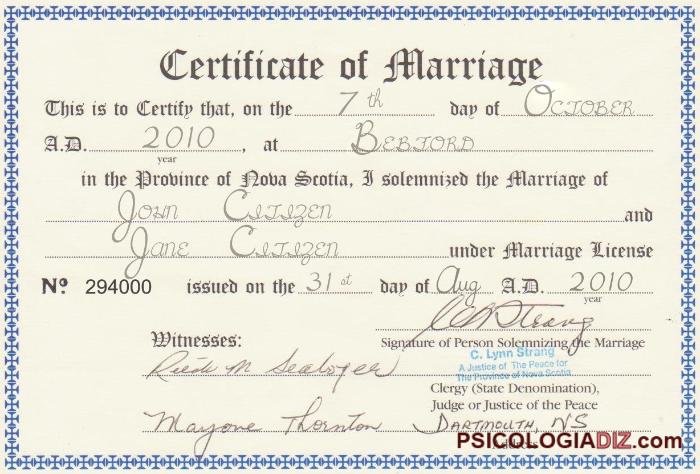 Certificate of Marriage
This is to Certify that, on the 7 th day of October
A.D. 2010, at Bebford
year
in the Province of Nova Scotia, I solemnized the Marriage of
John Citizen and
Jane Citizen under Marriage License
Nº 294000 issued on the 31 st day of Aug A.D. 2010
year
Strang
Witnesses:
Signature of Person Solemnizing the Marriage
C. Lynn Strang
A Justice of The Peace for
The Province of Nova Scotia
M
Clergy (State Denomination),
Judge or Justice of the Peace
Thornton
Dartmouth, NS
PSICOLOGIADIZ.com